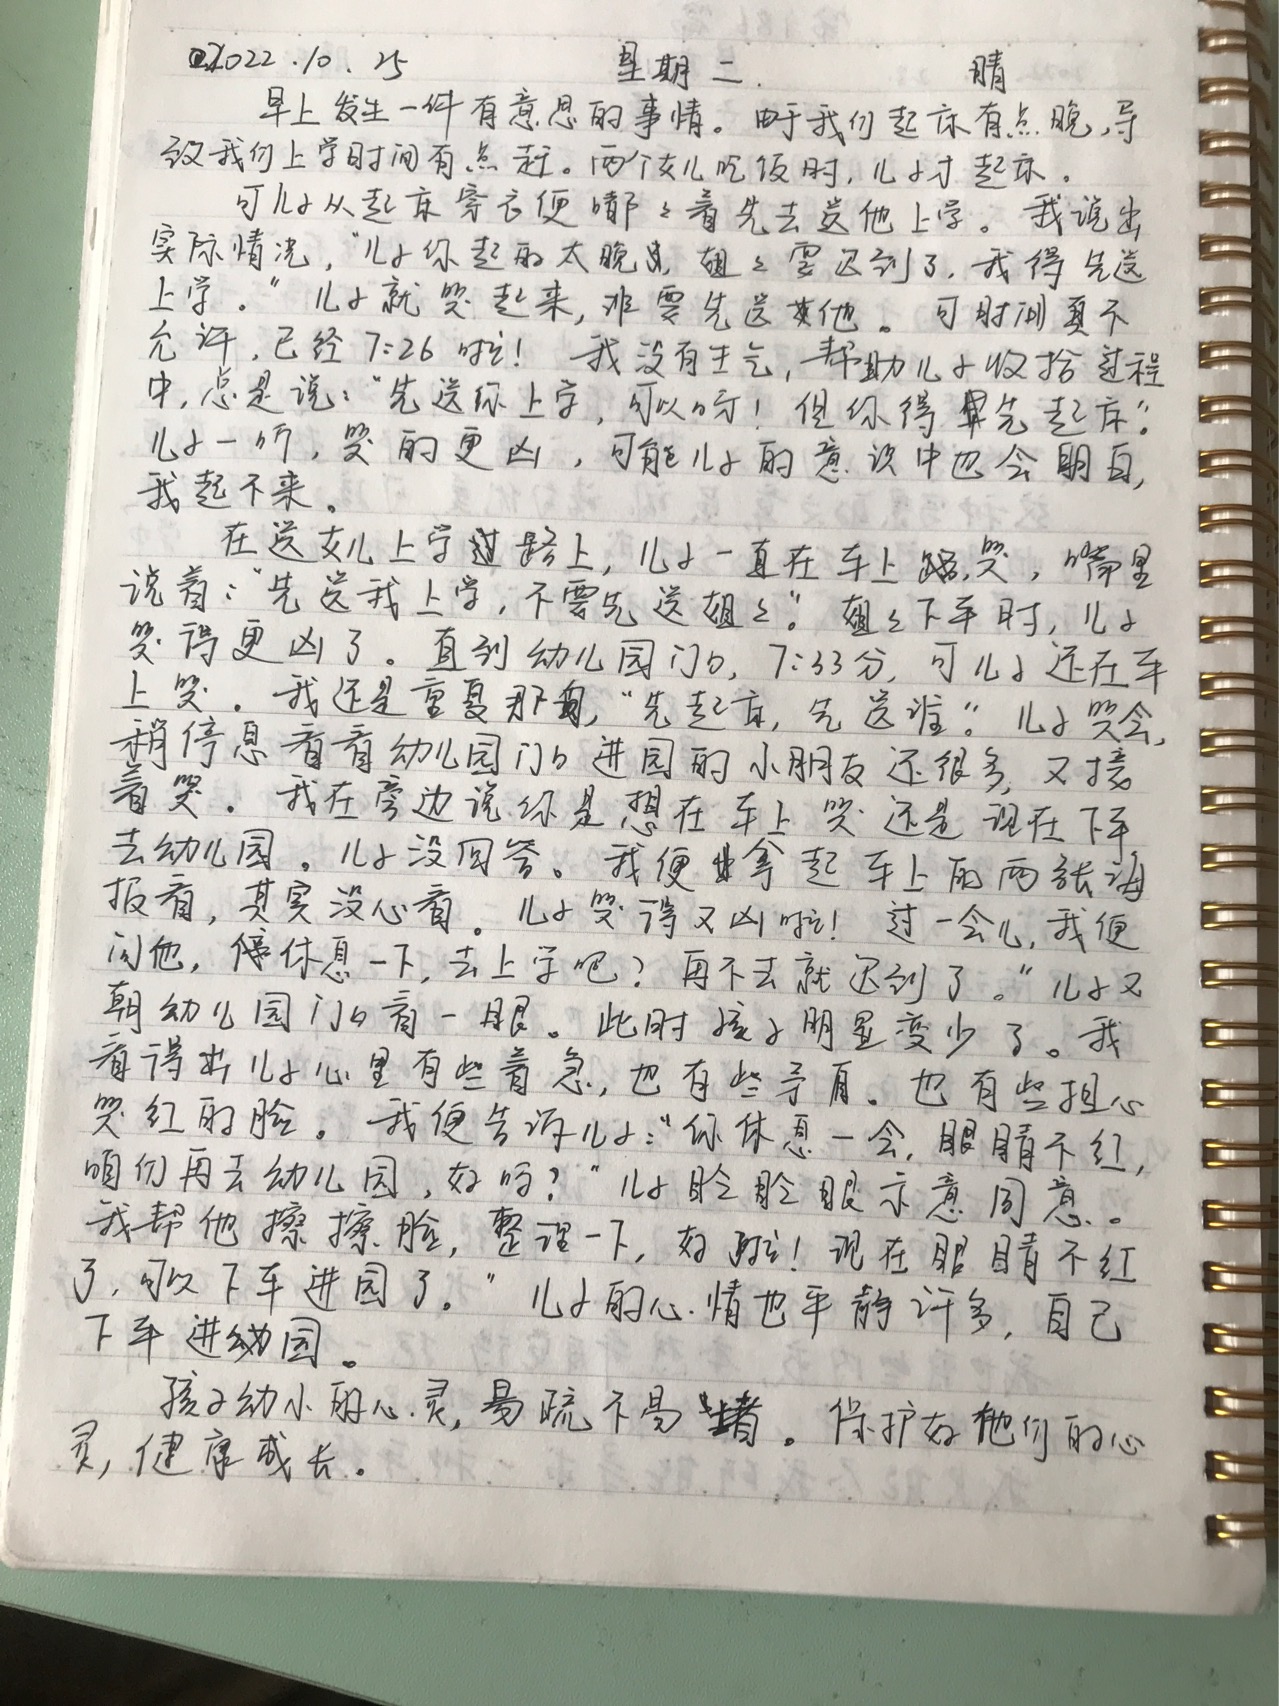 2022.10.25 星期二. 晴
早上发生一件有意思的事情。由于我们起床有点晚,导
致我们上学时间有点赶。两个女儿吃饭时,儿子才起床。
可儿子从起床穿衣便嘟々着先去送他上学。我说出
实际情况,“儿子你起的太晚, 姐々要迟到了,我得先送
上学。”儿子就哭起来,非要先送他。可时间真不
允许,已经7:26啦! 我没有生气,帮助儿子收拾过程
中,总是说:“先送你上学,可以呀!但你得早先起床”。
儿子一听,哭的更凶,可能儿子的意识中也会明白,
我起不来。
在送女儿上学过路上,儿子一直在车上哭,嘴里
说着:“先送我上学,不要先送姐々”。姐々下车时,儿子
哭得更凶了。直到幼儿园门口,7:33分,可儿子还在车
上哭。我还是重复那句,“先起床,先送谁”。儿子哭会,
稍停息看看幼儿园门口进园的小朋友还很多,又接
着哭。我在旁边说你是想在车上哭还是现在下车
去幼儿园。儿子没回答。我便拿起车上的两张海
报看,其实没心看。儿子哭得又凶啦! 过一会儿,我便
问他,停休息一下,去上学吧?再不去就迟到了。”儿子又
朝幼儿园门口看一眼。此时孩子明显变少了。我
看得出儿子心里有些着急,也有些矛盾。也有些担心
哭红的脸。我便告诉儿子:“你休息一会,眼睛不红,
咱们再去幼儿园,好吗?”儿子眨眨眼示意同意。
我帮他擦擦脸,整理一下,好啦!现在眼睛不红
了,可以下车进园了。”儿子的心情也平静许多,自己
下车进幼园。
孩子幼小的心灵,易疏不易堵。保护好他们的心
灵,健康成长。